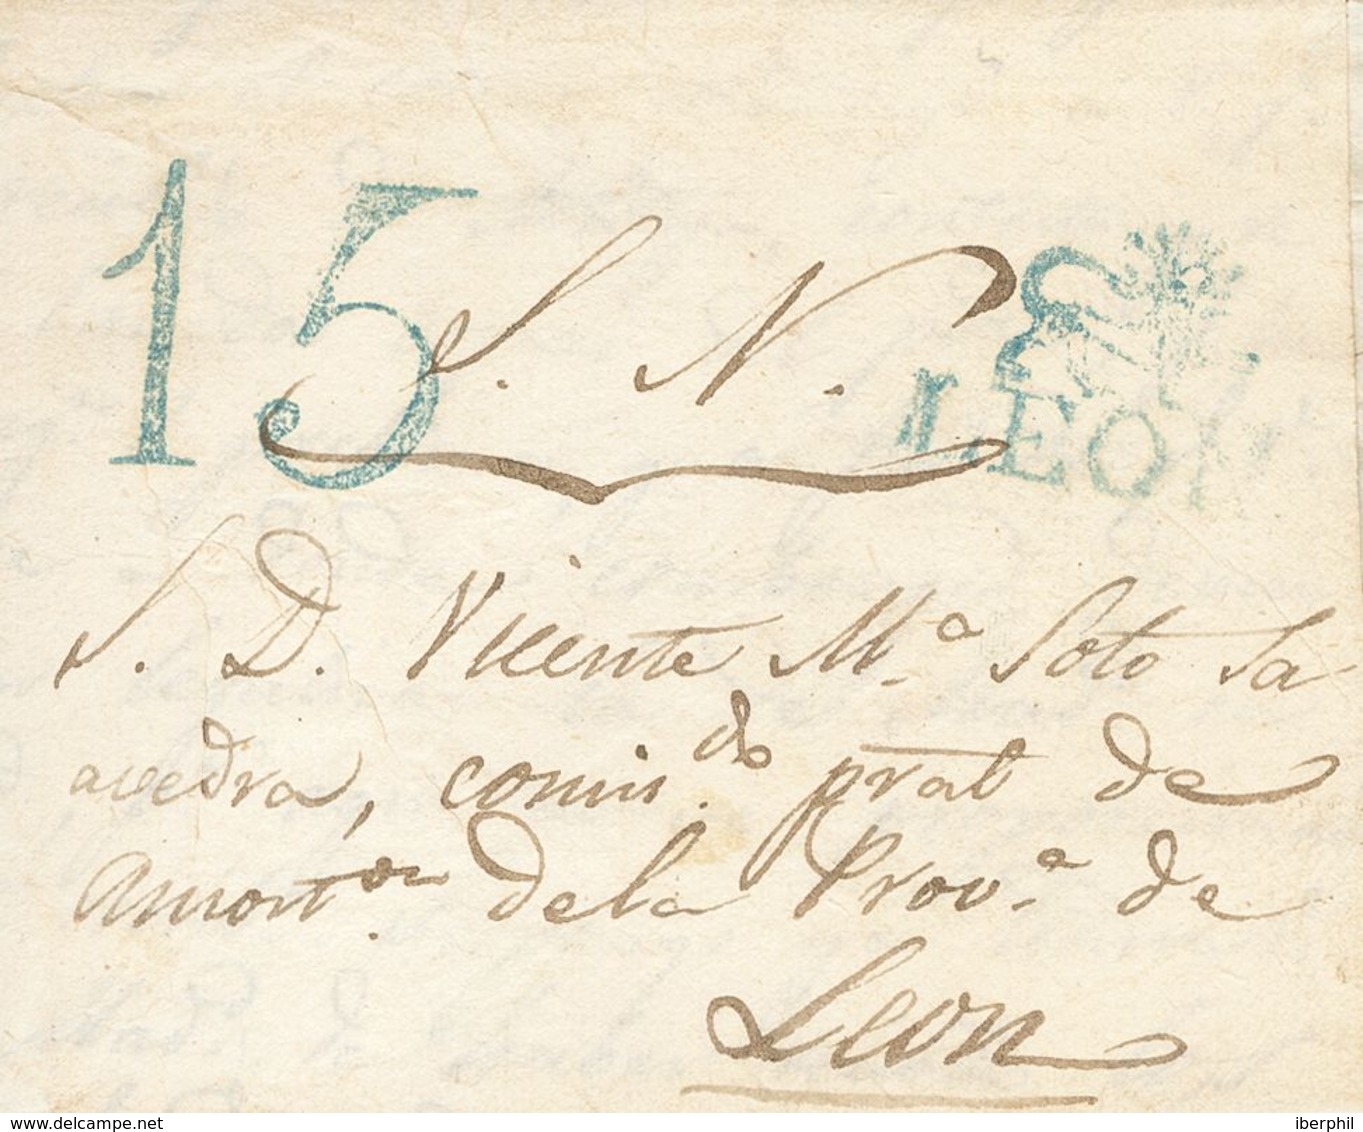 15
S. N.
LEON
S. D. Vicente M.ª Soto Sa-
avedra, comis.do pral de
Amort.on de la Prov.ª de
Leon
delcampe.net
iberphil